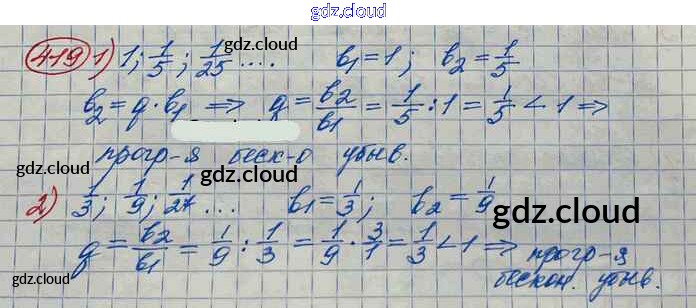 gdz.cloud
419 1) 1; 1/5; 1/25 .... b₁ = 1; b₂ = 1/5
gdz.cloud
b₂ = q · b₁ ⇒ q = b₂/b₁ = 1/5 : 1 = 1/5 < 1 ⇒
gdz.cloud
gdz.cloud
прогр-я беск-о убыв.
gdz.cloud
gdz.cloud
2) 1/3; 1/9; 1/27 ... b₁ = 1/3; b₂ = 1/9
gdz.cloud
q = b₂/b₁ = 1/9 : 1/3 = 1/9 · 3/1 = 1/3 < 1 ⇒ прогр-я
gdz.cloud
бескон. убыв.